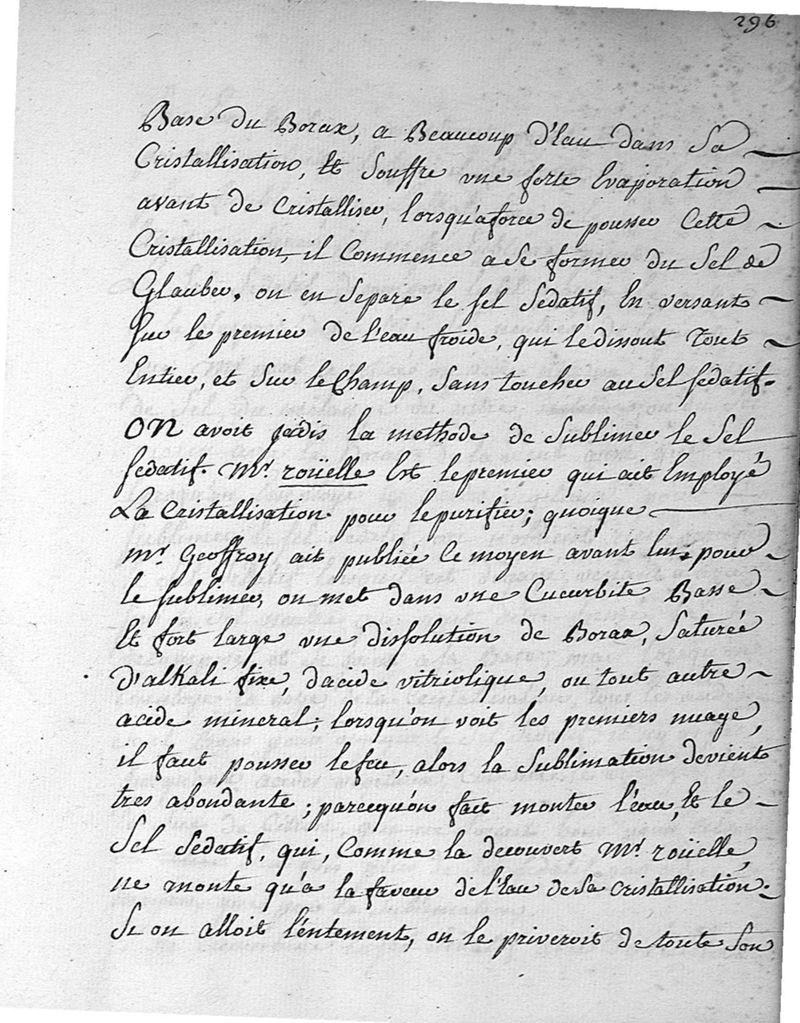 296
Base du Borax, a Beaucoup d'Eau dans Sa
Cristallisation, Et Souffre une forte Evaporation
avant de Cristalliser, lorsqu'aforce de pousser Cette
Cristallisation, il Commence a se former du Sel de
Glauber. on en Separe le sel Sedatif, En versant
sur le premier de l'eau froide, qui le dissout Tout
Entier, et Sur le Champ, Sans toucher au Sel sedatif.
ON avoit jadis la methode de Sublimer le Sel
Sedatif. Mr. roüelle Est le premier qui ait Employé
La Cristallisation pour le purifier; quoique
Mr. Geoffroy, ait publiée Ce moyen avant lui. pour
le sublimer, on met dans une Cucurbite Basse
Et fort large une dissolution de Borax, Saturée
D'alkali fixe, d'acide vitriolique, ou tout autre
acide mineral; lorsqu'on voit les premiers nuage,
il faut pousser le feu, alors la Sublimation devient
tres abondante; parcequ'on fait monter l'eau, Et le
Sel Sedatif, qui, Comme la decouvert Mr. roüelle,
ne monte qu'a la faveur de l'Eau de Sa Cristallisation.
Si on alloit lentement, on le priveroit de toute Son